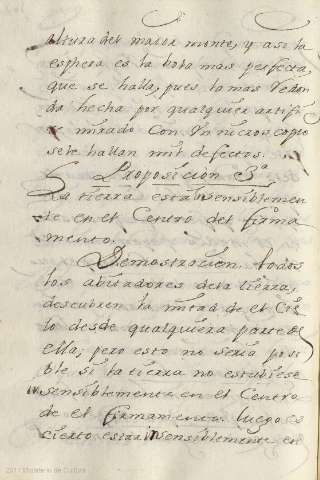 altura del maior monte, y asi la
esphera es la bola mas perfecta,
que se halla, pues la mas redon
da hecha por qualquier artifi
ce mirado con Un microscopio
se le hallan mil defectos.
Proposicion 3ª
La tierra esta insensiblemen
te en el Centro del firma
mento.
Demostracion todos
los abitadores de la tierra,
descubren la mitad de el Cie
lo desde qualquiera parte de
ella; pero esto no seria posi
ble si la tierra no estubiese
insensiblemente en el Centro
de el firmamento luego es
cierto estar insensiblemente en
2011 Ministerio de Cultura